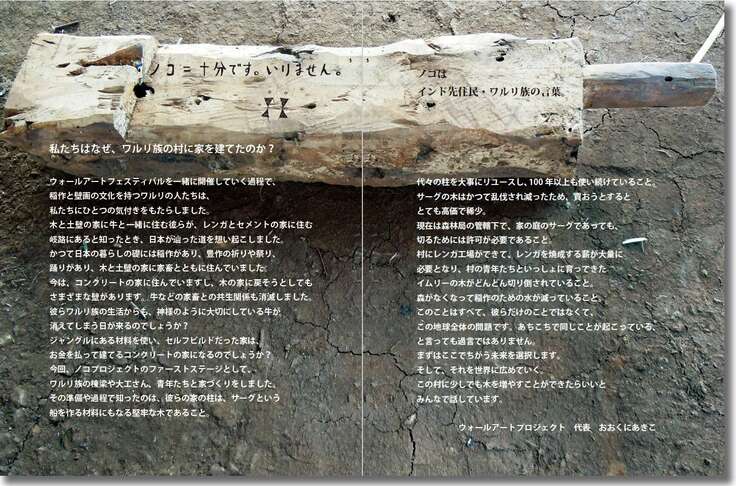 ノコ＝十分です。いりません。
ノコは
インド先住民・ワルリ族の言葉
私たちはなぜ、ワルリ族の村に家を建てたのか？
ウォールアートフェスティバルを一緒に開催していく過程で、
稲作と壁画の文化を持つワルリの人たちは、
私たちにひとつの気付きをもたらしました。
木と土壁の家に牛と一緒に住む彼らが、レンガとセメントの家に住む
岐路にあると知ったとき、日本が辿った道を想い起こしました。
かつて日本の暮らしの礎には稲作があり、豊作の祈りや祭り、
踊りがあり、木と土壁の家に家畜とともに住んでいました。
今は、コンクリートの家に住んでいますし、木の家に戻そうとしても
さまざまな壁があります。牛などの家畜との共生関係も消滅しました。
彼らワルリ族の生活からも、神様のように大切にしている牛が、
消えてしまう日が来るのでしょうか？
ジャングルにある材料を使い、セルフビルドだった家は、
お金を払って建てるコンクリートの家になるのでしょうか？
今回、ノコプロジェクトのファーストステージとして、
ワルリ族の棟梁や大工さん、青年たちと家づくりをしました。
その準備や過程で知ったのは、彼らの家の柱は、サーグという
船を作る材料にもなる堅牢な木であること。
代々の柱を大事にリユースし、100年以上も使い続けていること。
サーグの木はかつて乱伐され減ったため、買おうとすると
とても高価で稀少。
現在は森林局の管轄下で、家の庭のサーグであっても、
切るためには許可が必要であること。
村にレンガ工場ができて、レンガを焼成する薪が大量に
必要となり、村の青年たちといっしょに育ってきた
イムリーの木がどんどん切り倒されていること。
森がなくなって稲作のための水が減っていること。
このことはすべて、彼らだけのことではなくて、
この地球全体の問題です。あちこちで同じことが起こっている、
と言っても過言ではありません。
まずはここでちがう未来を選択します。
そして、それを世界に広めていく、
この村に少しでも木を増やすことができたらいいと
みんなで話しています。
ウォールアートプロジェクト　代表　おおくにあきこ